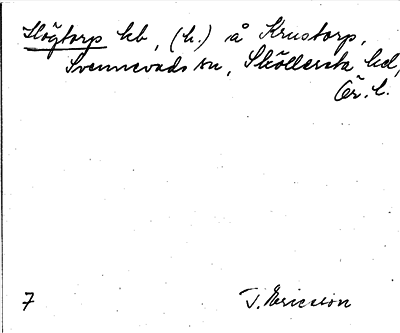 Högtorp kb, (h.) å Krustorp,
Svennevads sn, Sköllersta hd,
Ör. l.
7
T. Ericsson